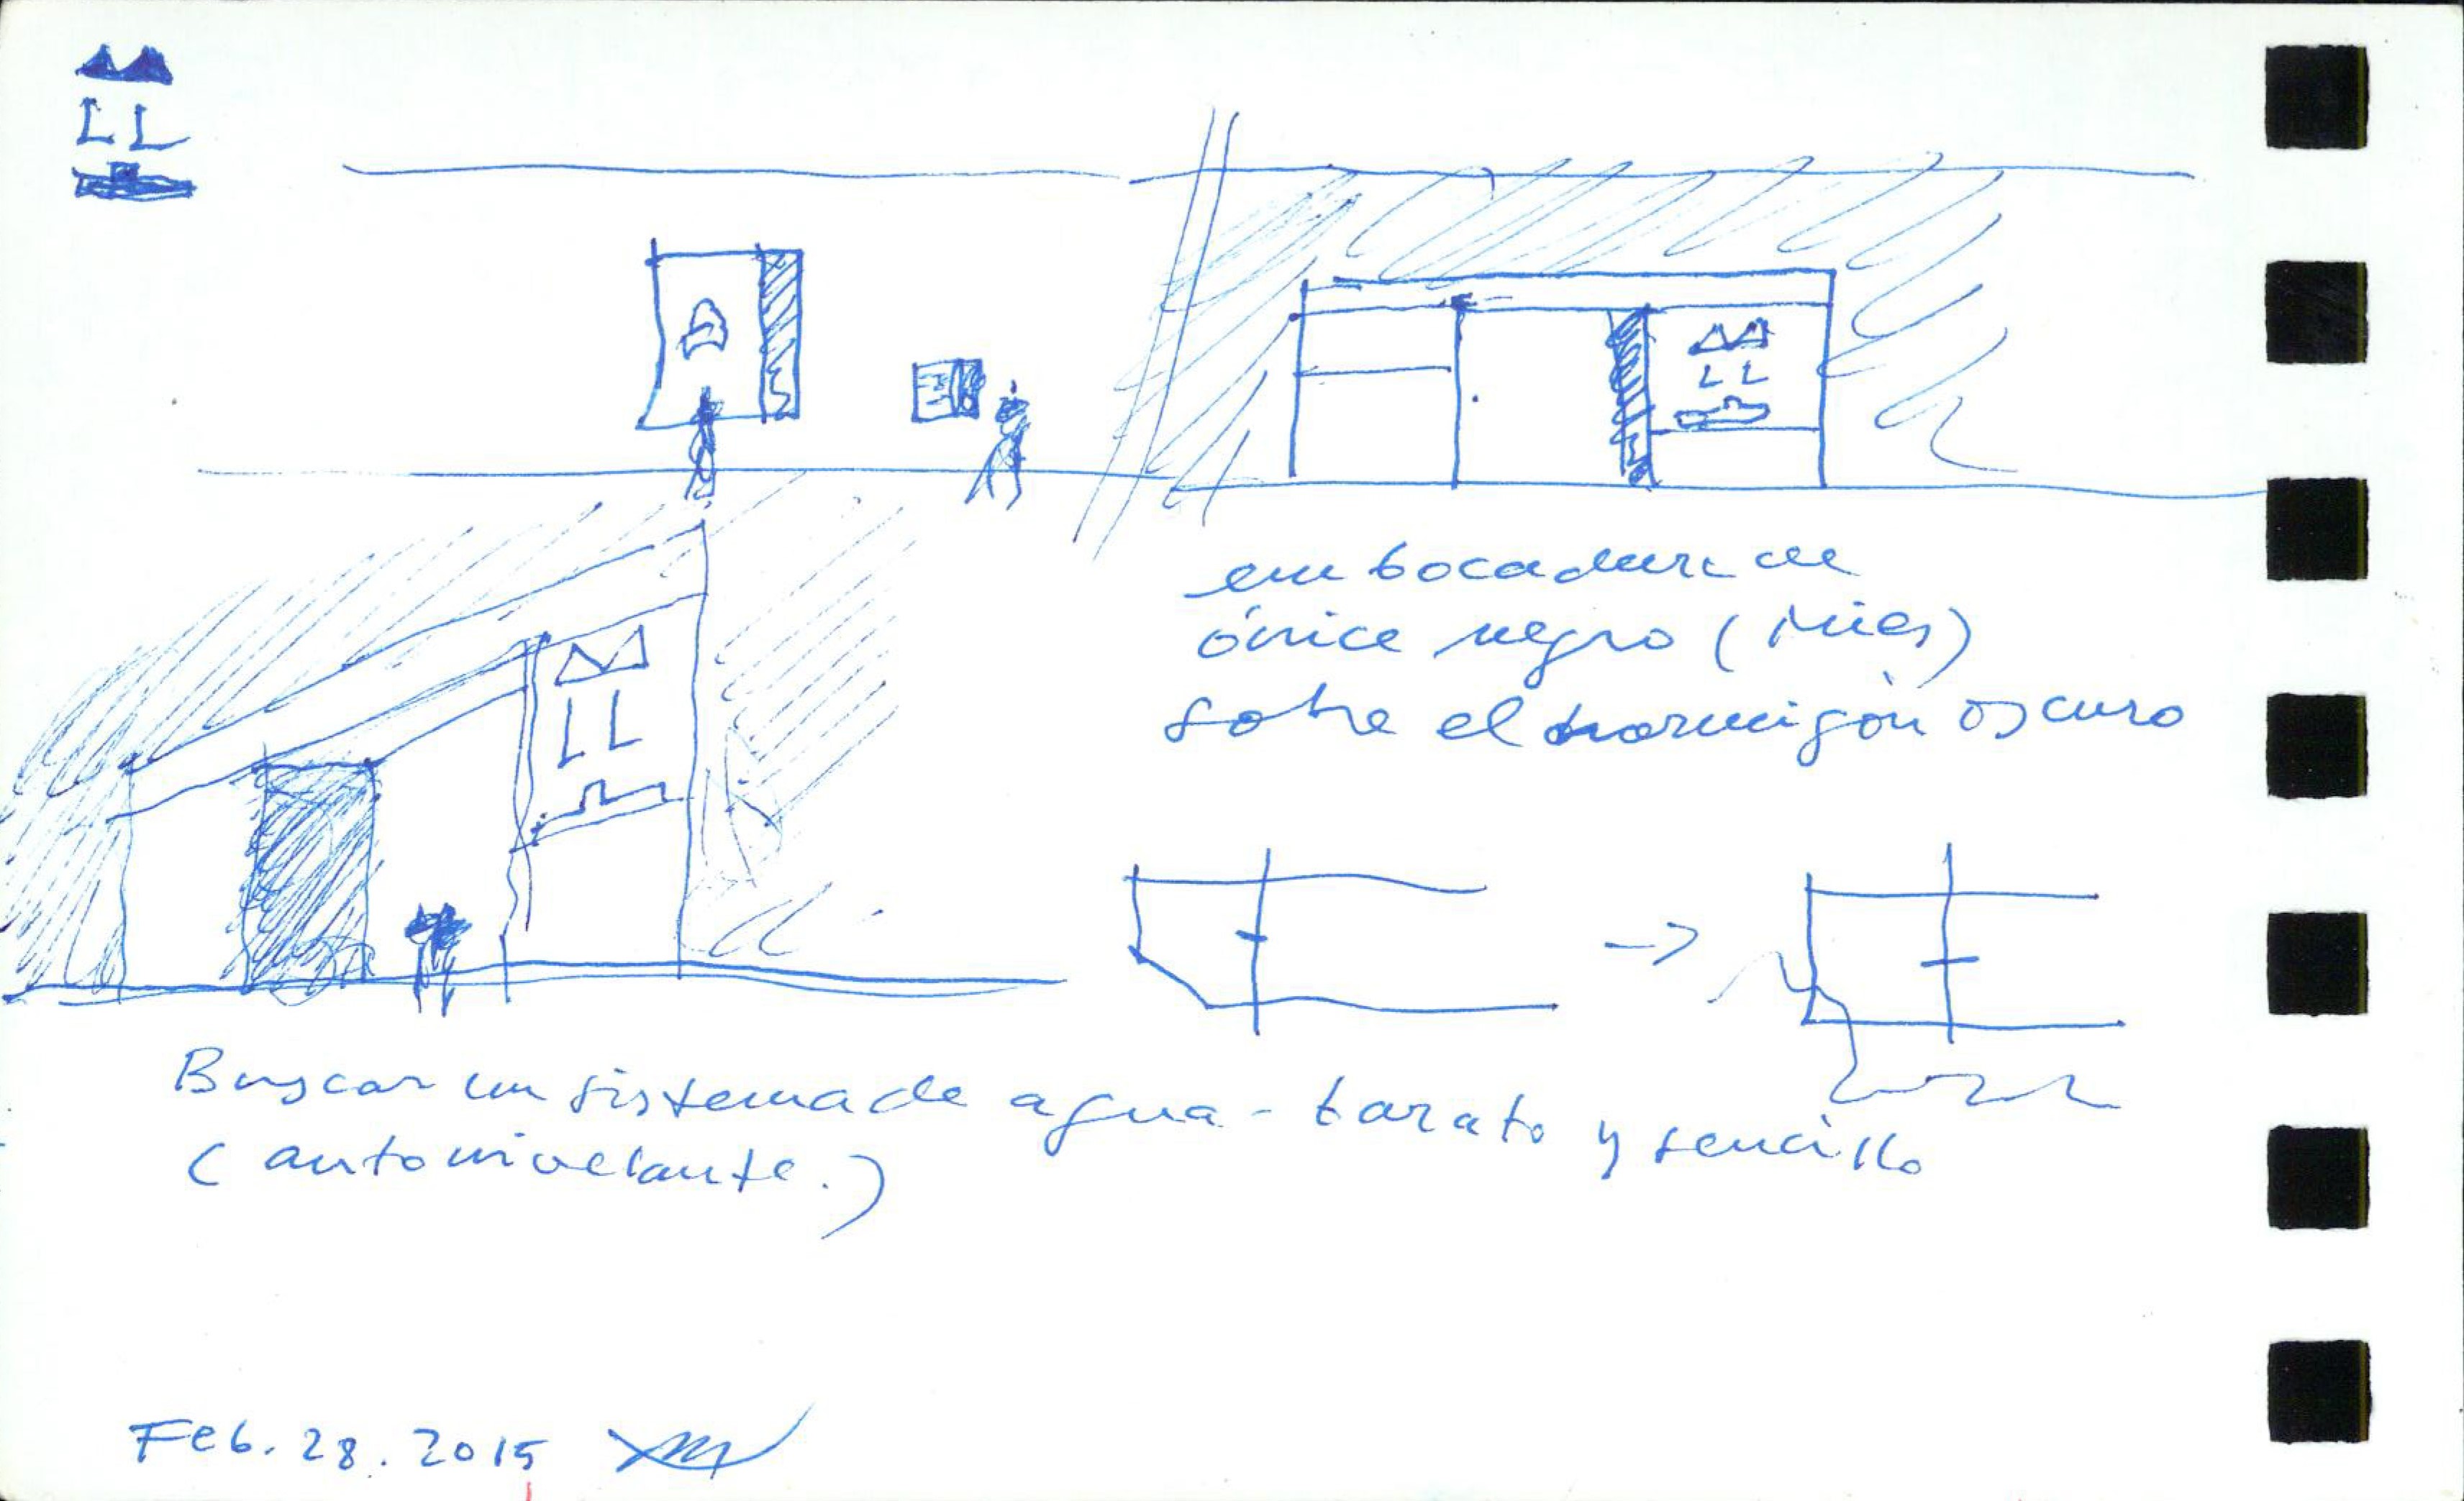 LL
LL
embocadura de
ónice negro (Mies)
sobre el hormigón oscuro
LL
Buscar un sistema de agua - barato y sencillo
(autonivelante.)
Feb. 28. 2015